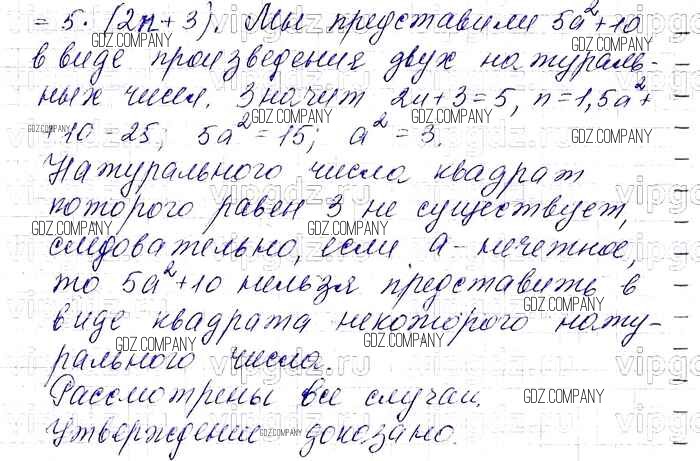 = 5 · (2n + 3). Мы представили 5a² + 10
в виде произведения двух натураль-
ных чисел. Значит 2n + 3 = 5, n = 1, 5a² +
+ 10 = 25; 5a² = 15; a² = 3.
Натурального числа квадрат
которого равен 3 не существует,
следовательно, если a - нечетное,
то 5a² + 10 нельзя представить в
виде квадрата некоторого нату-
рального числа.
Рассмотрены все случаи.
Утверждение доказано.
GDZ.COMPANY
vipgdz.ru